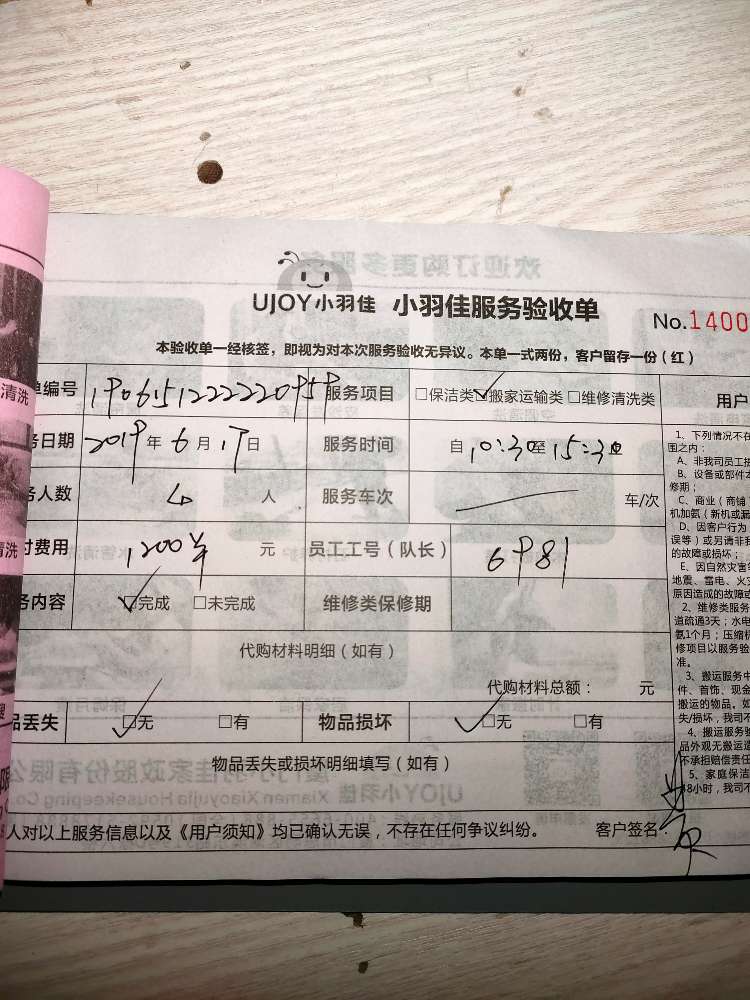 UJOY小羽佳 小羽佳服务验收单
No.1400
本验收单一经核签，即视为对本次服务验收无异议。本单一式两份，客户留存一份（红）
单编号 1906151222220959 服务项目 □保洁类 ☑搬家运输类 □维修清洗类 用户
务日期 2019年6月17日 服务时间 自10:30至15:30
务人数 4人 服务车次 车/次
付费用 1200 元 员工工号（队长） 6981
务内容 ☑完成 □未完成 维修类保修期
代购材料明细（如有）
代购材料总额： 元
品丢失 ☑无 □有 物品损坏 ☑无 □有
物品丢失或损坏明细填写（如有）
人对以上服务信息以及《用户须知》均已确认无误，不存在任何争议纠纷。 客户签名：
1、下列情况不在
围之内：
A、非我司员工
B、设备或部件本
修期；
C、商业（商铺
机加氨（新机或漏
D、因客户行为
误等）或另请非我
的故障或损坏；
E、因自然灾害
地震、雷电、火
原因造成的故障或
2、维修类服务
道疏通3天；水电
氨1个月；压缩机
修项目以服务验
准。
3、搬运服务中
件、首饰、现金
搬运的物品。如
失/损坏，我司不
4、搬运服务验
品外观无搬运
不承担赔偿责任
5、家庭保洁
48小时，我司不
清洗
清洗